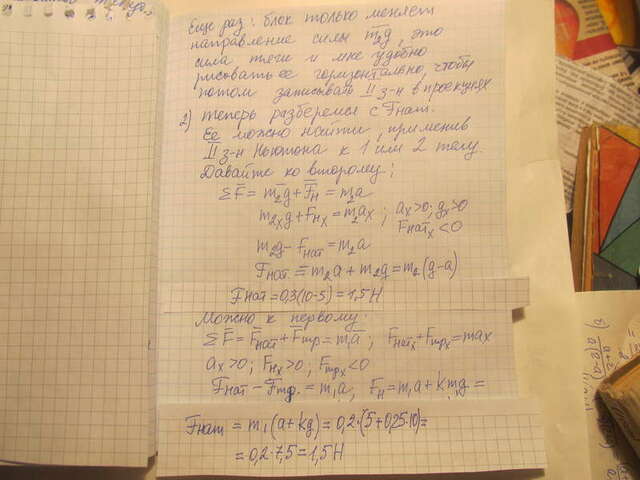 Еще раз: блок только меняет
направление силы m₂g, это
сила тяги и мне удобно
рисовать ее горизонтально, чтобы
потом записывать II з-н в проекциях
2) теперь разберемся с Fнат.
Ее можно найти, применив
II з-н Ньютона к 1 или 2 телу.
Давайте ко второму;
ΣF̄ = m₂ḡ + F̄н = m₂ā
m₂ₓg + Fнₓ = m₂aₓ ; aₓ>0; gₓ>0
Fнатₓ<0
m₂g - Fнат = m₂a
Fнат = -m₂a + m₂g = m₂(g-a)
Fнат = 0,3(10-5) = 1,5 Н
Можно к первому:
ΣF̄ = F̄нат + F̄тр = m₁ā ; Fнатₓ + Fтрₓ = maₓ
aₓ>0; Fнₓ>0; Fтрₓ<0
Fнат - Fтр. = m₁a, Fн = m₁a + km₁g =
Fнат = m₁(a+kg) = 0,2·(5+0,25·10) =
= 0,2·7,5 = 1,5 Н